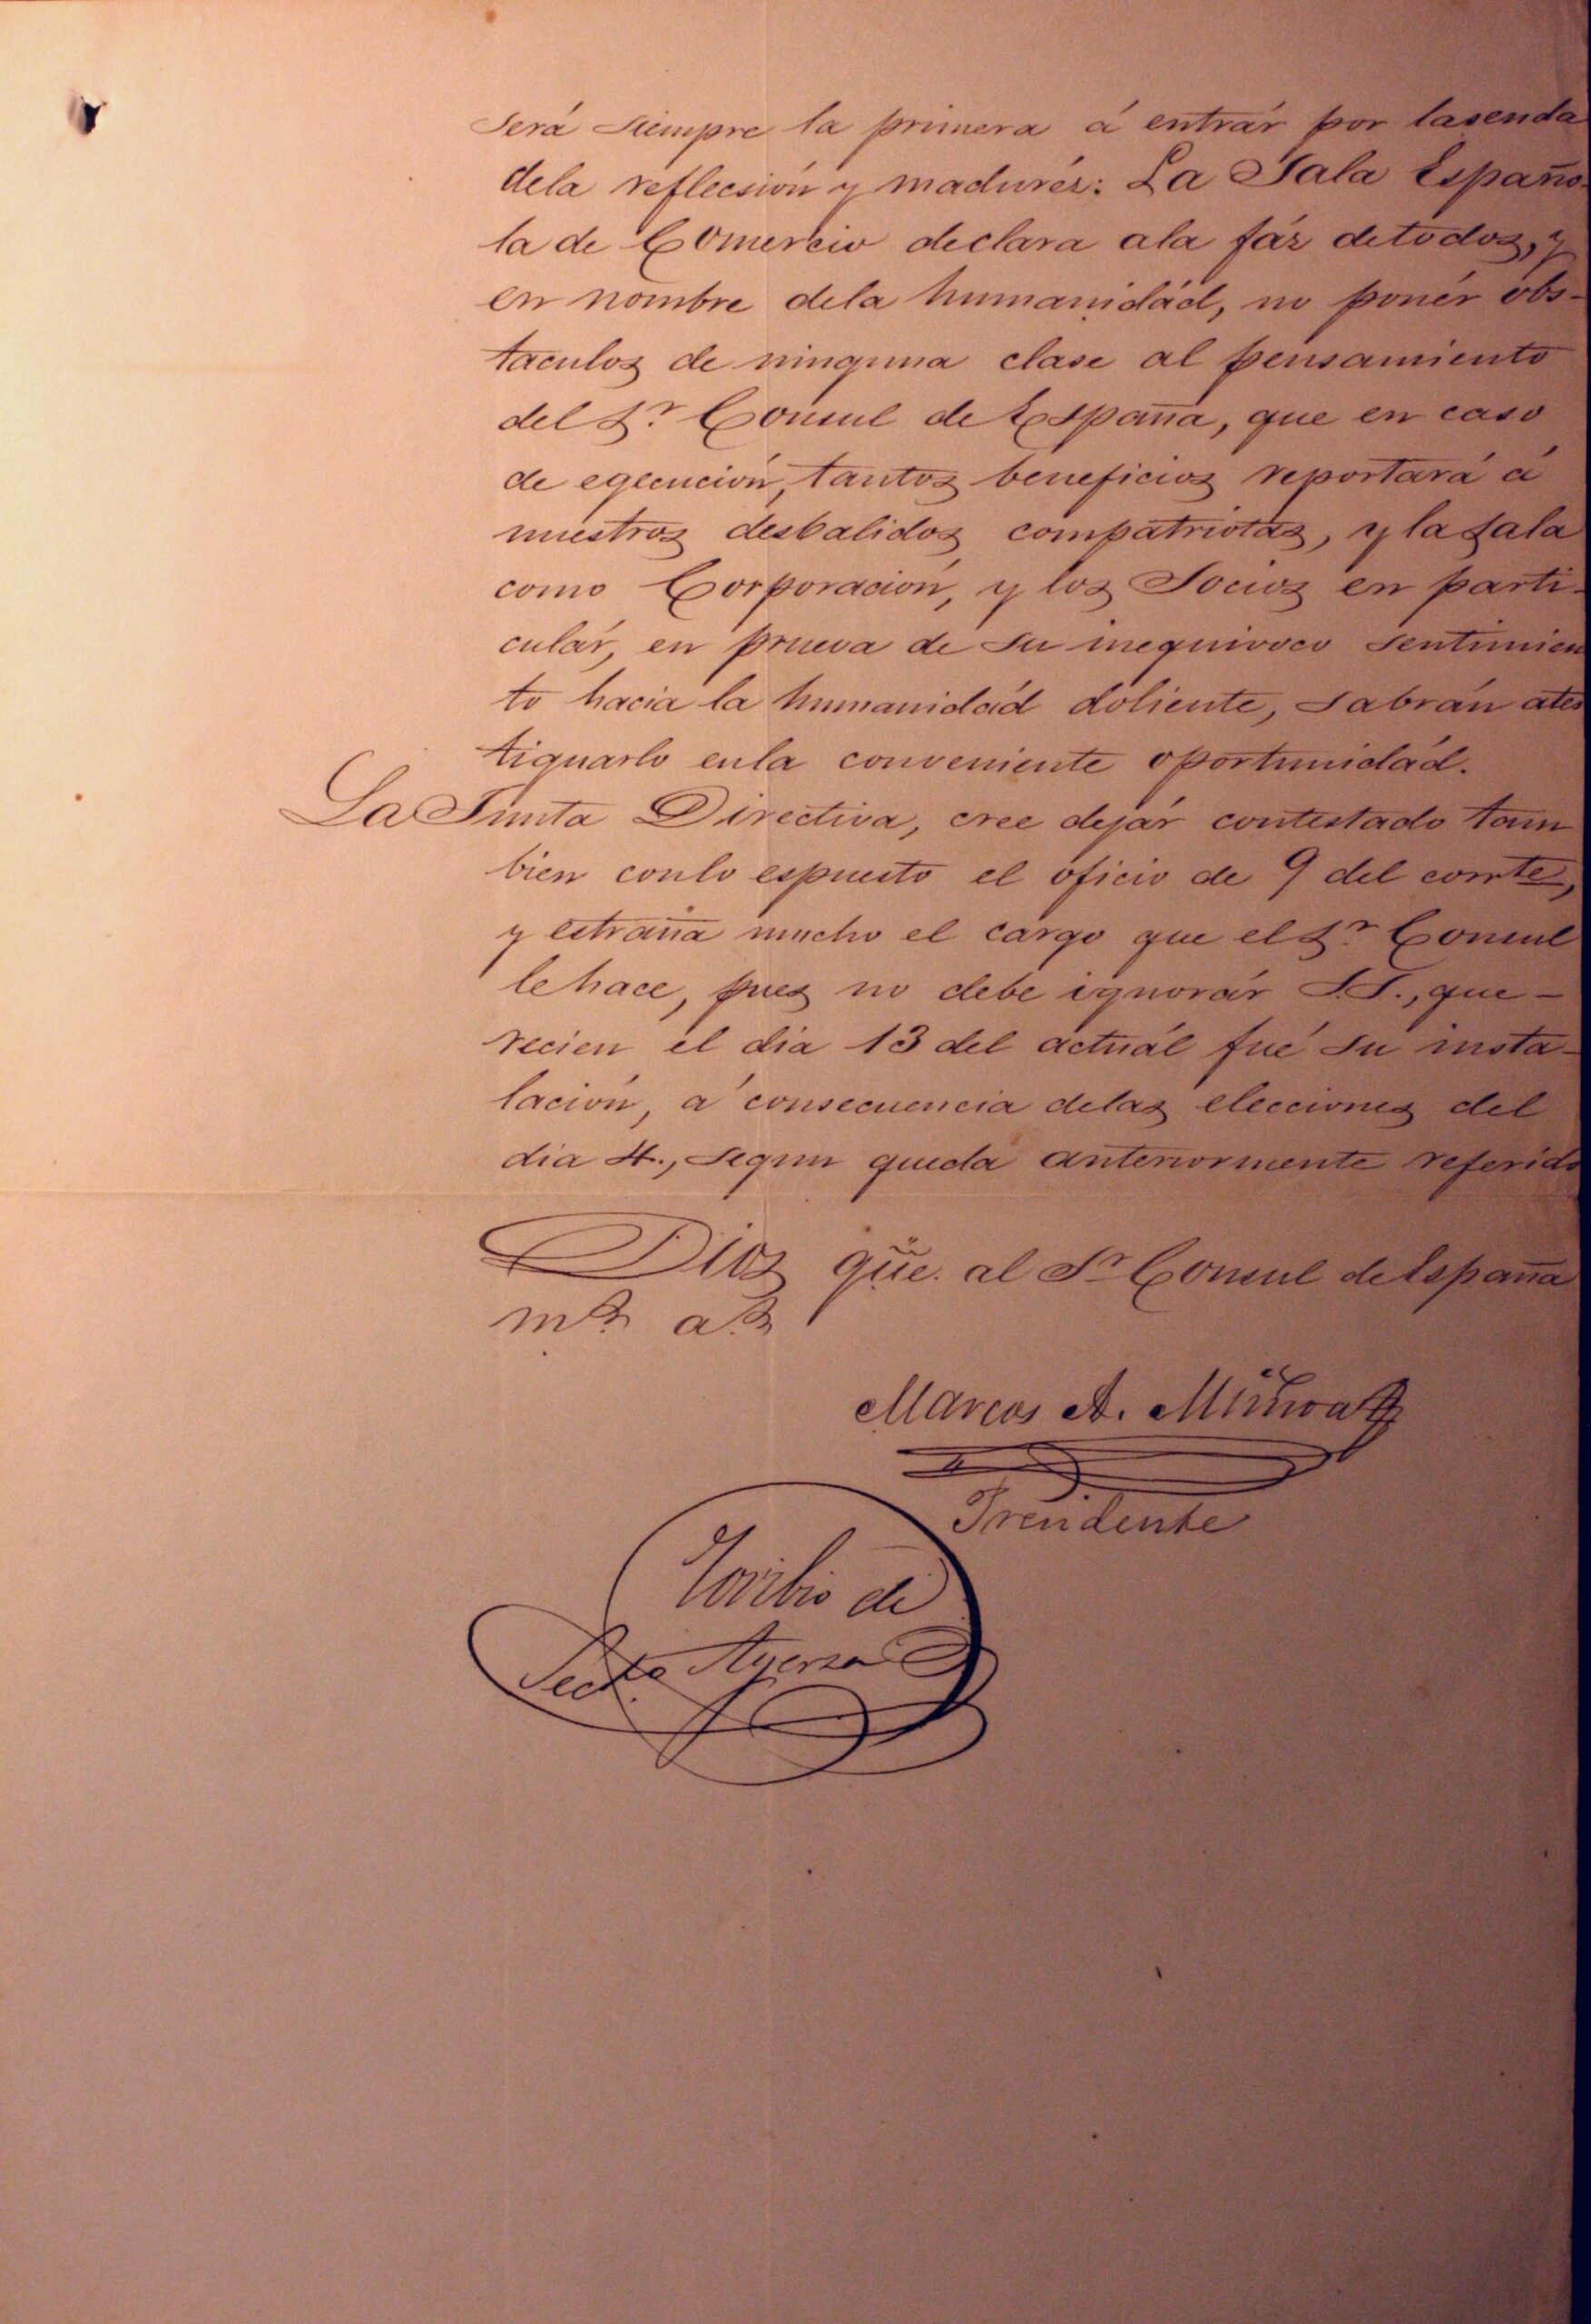 será siempre la primera á entrár por lasenda
dela reflecsión y madurés: La Sala Españo-
la de Comercio declara ala fáz detodos, y
en nombre dela humanidád, no ponér obs-
taculos de ninguna clase al pensamiento
del Sr. Consul de España, que en caso
de egecución, tantos beneficios reportará á
nuestros desbalidos compatriotas, y la Sala
como Corporación, y los Socios en parti-
culár, en prueva de su inequivoco sentimien
to hacia la humanidád doliente, sabrán ates
tiguarlo enla conveniente oportunidád.
La Junta Directiva, cree dejár contestado tam
bien conlo espuesto el oficio de 9 del corrte,
y estraña mucho el cargo que el Sr. Consul
lehace, pues no debe ignorár S.S., que -
recien el dia 13 del actuál fué su insta-
lación, á consecuencia delas elecciones del
dia 4., segun queda anteriormente referido
Dios güe. al Sr. Consul de España
ms. as.
Marcos A.
Presidente
Toribio de
Secto. Ayerza